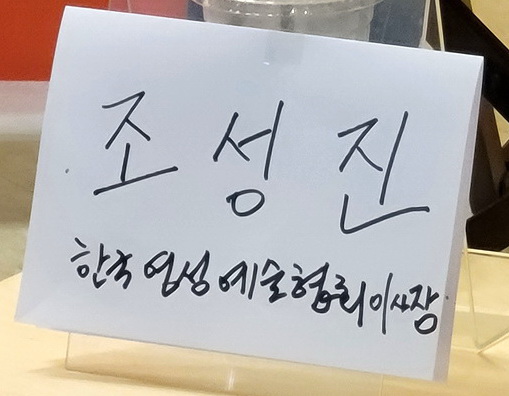 조성진
한국 예술협회이사장